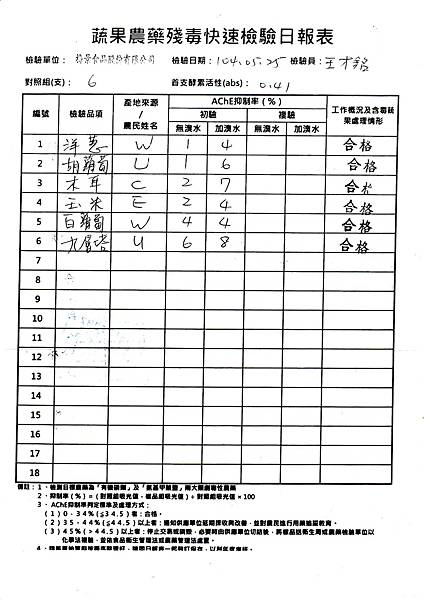 蔬果農藥殘毒快速檢驗日報表
檢驗單位： 食品股份有限公司 檢驗日期：104.05.25 檢驗員：王
對照組(支)： 6 首支酵素活性(abs)： 0.41
編號 檢驗品項 產地來源/農民姓名 AChE抑制率（%） 工作概況及含毒蔬果處理情形
初驗 複驗
無溴水 加溴水 無溴水 加溴水
1 洋蔥 W 1 4 合格
2 胡蘿蔔 U 1 6 合格
3 木耳 C 2 7 合格
4 玉米 E 2 4 合格
5 白蘿蔔 W 4 4 合格
6 九層塔 U 6 8 合格
7
8
9
10
11
12
13
14
15
16
17
18
備註：1、檢測目標農藥為「有機磷類」及「氨基甲酸鹽」兩大類劇毒性農藥
2、抑制率（%）=（對照組吸光值－樣品組吸光值）÷對照組吸光值×100
3、AChE抑制率判定標準及處理方式：
(1) 0﹒34%(≦34.5)者：合格。
(2) 35﹒44%(≦44.5)以上者：通知供應單位延期採收與改善，並對農民進行用藥追蹤教育。
(3) 45%(＞44.5)以上者：停止交易或銷毀，必要時由供應單位切結後，將樣品送衛生局或農藥檢驗單位以
化學法複驗，並依食品衛生管理法或農藥管理法處置。